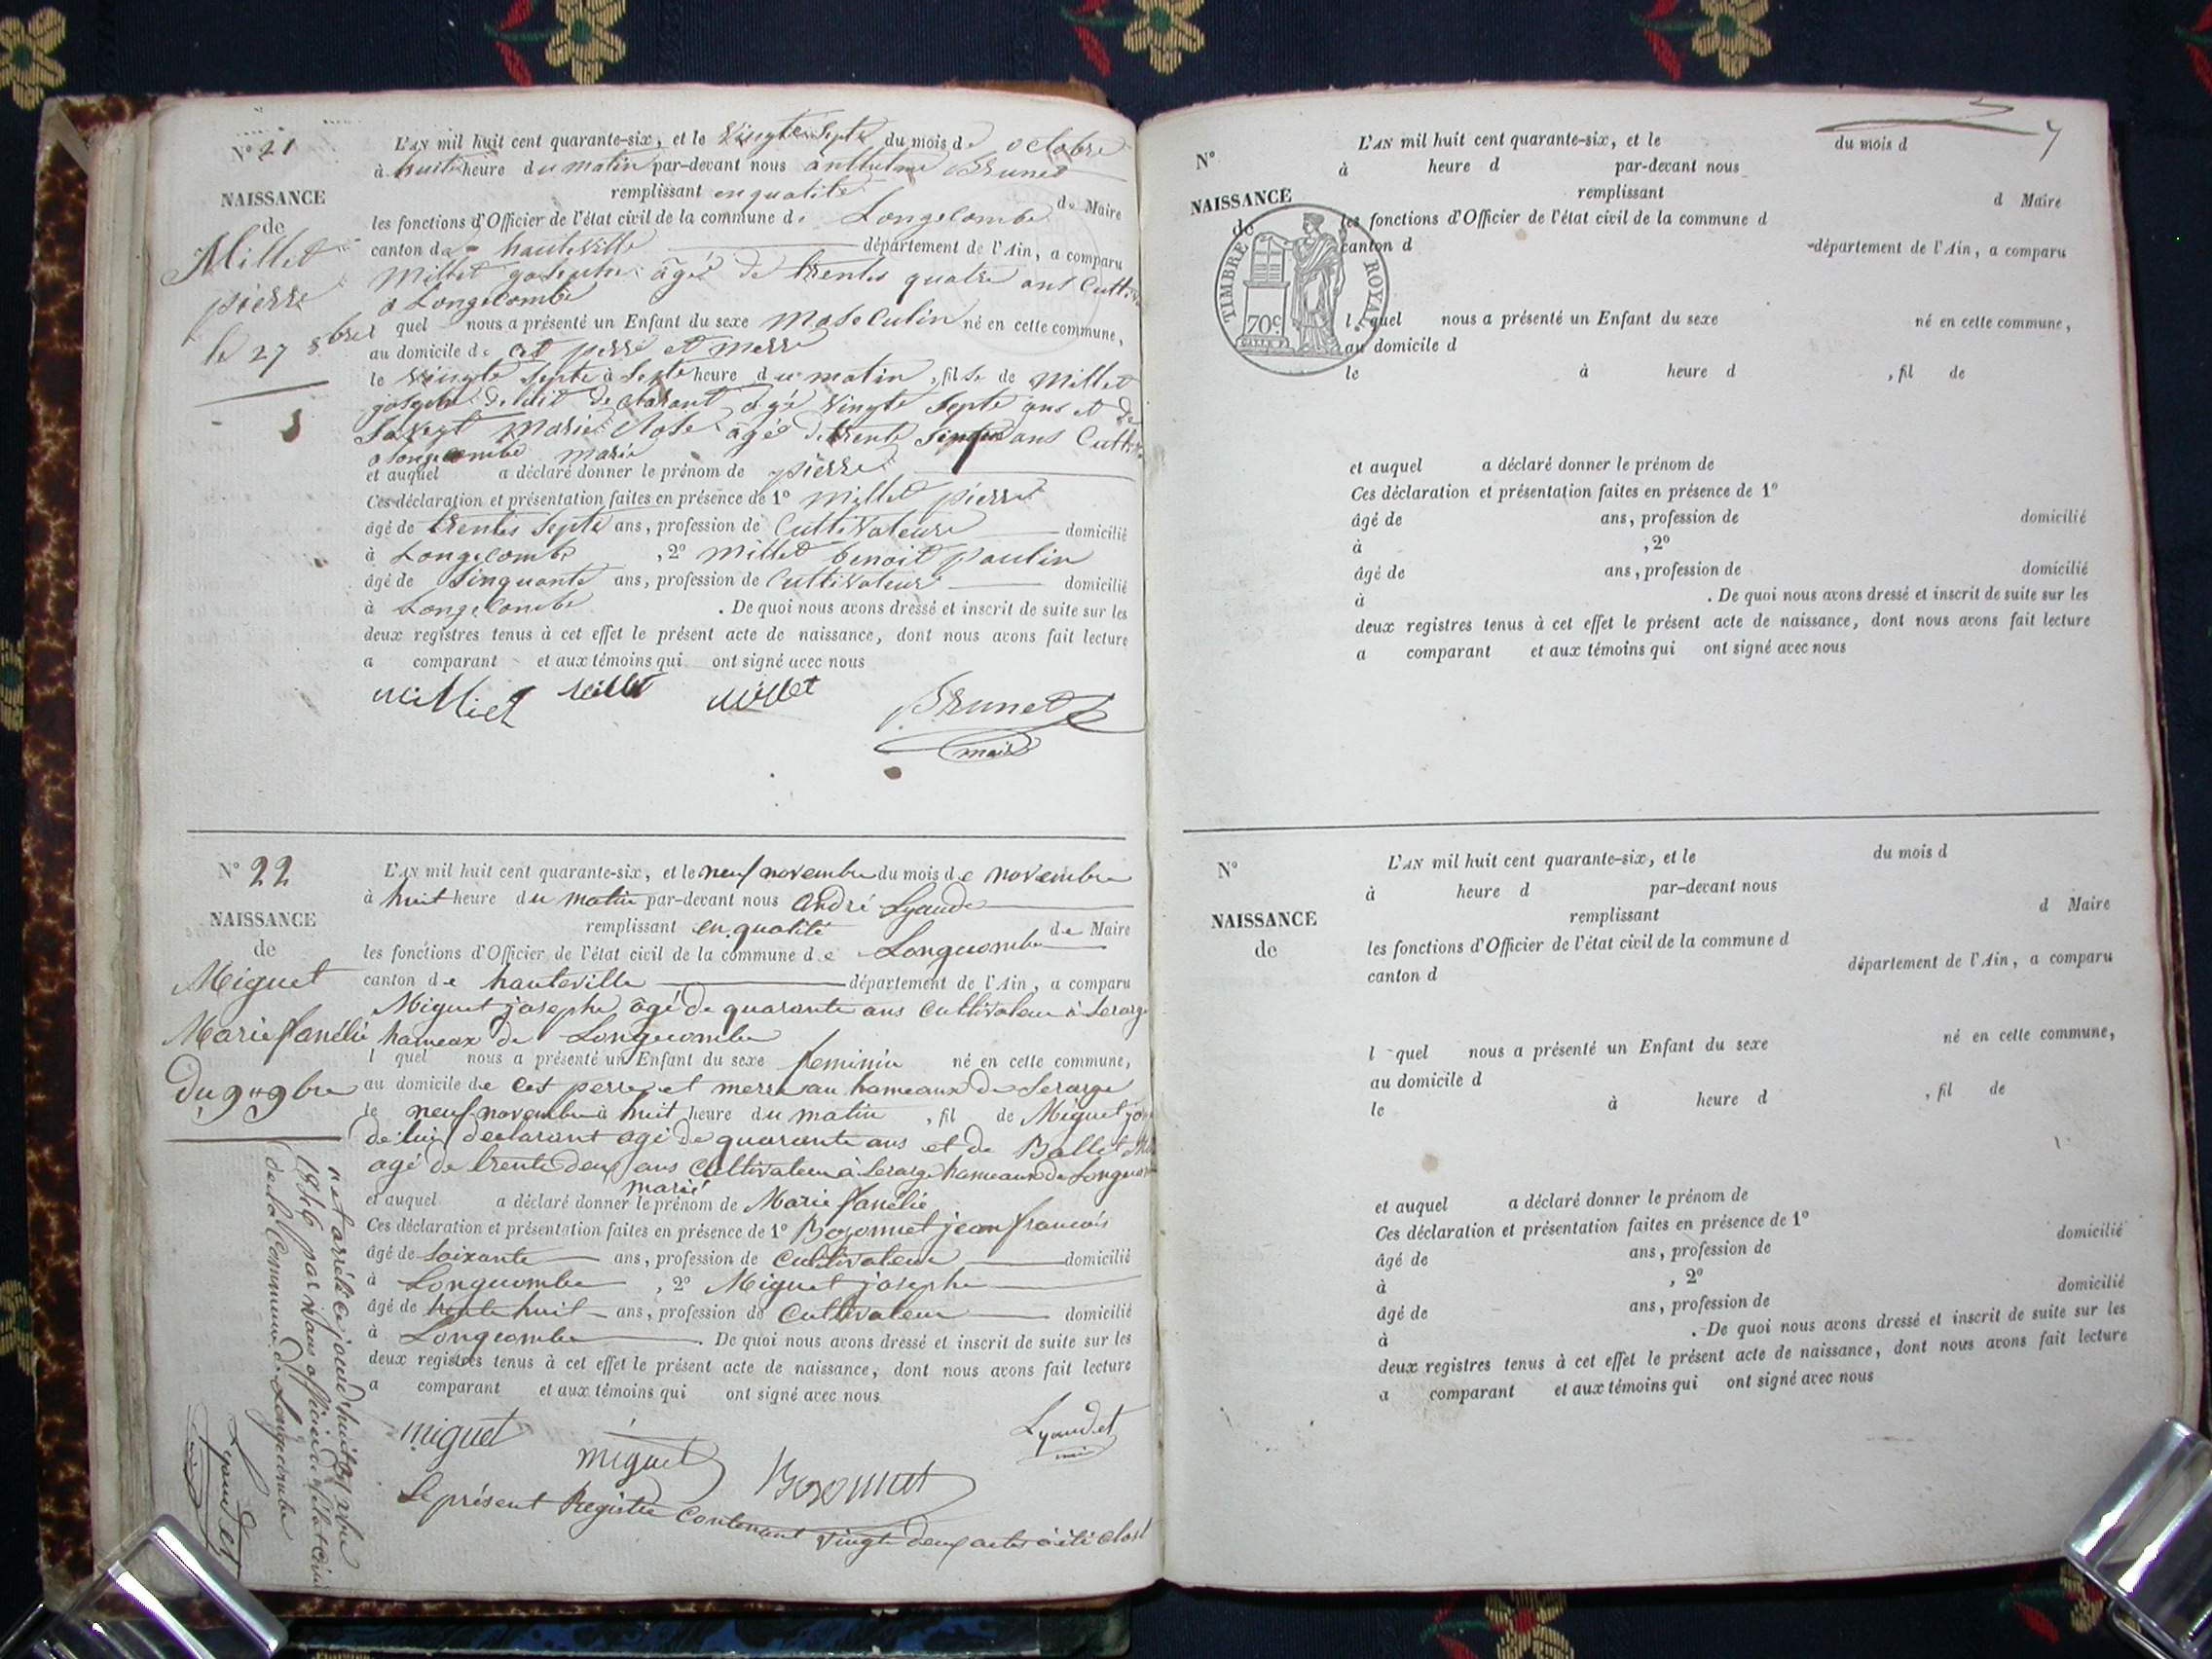 N° 21
NAISSANCE
de
Millet
pierre
le 27 8bre
L'AN mil huit cent quarante-six, et le Vingte Septe du mois de octobre
à huit heure du matin par-devant nous anthelme Brunet
remplissant en qualité de Maire
les fonctions d'Officier de l'état civil de la commune de Longecombe
canton de hauteville département de l'Ain, a comparu
Millet joseph âgé de trente quatre ans Cultiv
a Longecombe
l quel nous a présenté un Enfant du sexe Masculin né en cette commune,
au domicile de cet perre et merre
le vingte Septe à Septe heure du matin, fils de Millet
joseph de dit de clarant agé vingte Septe ans et de
marie âgé de trente ans Cultiv
a Longecombe marié
et auquel a déclaré donner le prénom de pierre
Ces déclaration et présentation faites en présence de 1° Millet pierre
âgé de trentes Septe ans, profession de Cultivateur domicilié
à Longecombe, 2° Millet benoit paulin
âgé de Sinquante ans, profession de Cultivateur domicilié
à Longecombe. De quoi nous avons dressé et inscrit de suite sur les
deux registres tenus à cet effet le présent acte de naissance, dont nous avons fait lecture
a comparant et aux témoins qui ont signé avec nous
Milliet Millet Millet Brunet
maire
N° 22
NAISSANCE
de
Miguet
Marie fanélie
Du 9 9bre
L'AN mil huit cent quarante-six, et le neuf novembre du mois de novembre
à huit heure du matin par-devant nous André Lyaudet
remplissant en qualité de Maire
les fonctions d'Officier de l'état civil de la commune de Longecombe
canton de hauteville département de l'Ain, a comparu
Miguet josephe âgé de quarante ans cultivateur à Lerarge
hameax de Longecombe
l quel nous a présenté un Enfant du sexe feminin né en cette commune,
au domicile de cest perre et merre au hameaux de Lerarge
le neuf novembre à huit heure du matin, fil de Miguet jo
de lui declarant agé de quarante ans et de Ballet
agé de trente deux ans cultivateur à Lerarge hameaux de Longecom
marié
et auquel a déclaré donner le prénom de Marie fanélie
Ces déclaration et présentation faites en présence de 1° Bozonnet jean francois
âgé de soixante ans, profession de cultivateur domicilié
à Longecombe, 2° Miguet josephe
âgé de trente huit ans, profession de cultivateur domicilié
à Longecombe. De quoi nous avons dressé et inscrit de suite sur les
deux registres tenus à cet effet le présent acte de naissance, dont nous avons fait lecture
a comparant et aux témoins qui ont signé avec nous
miguet miguet Bozonnet Lyaudet
Le présent Registre contenant vingt deux actes a été clos
et arrété ce jourd'hui 31 xbre
1846 par nous officier de l'état civil
de la Commune de Longecombe
Lyaudet
7
N°
NAISSANCE
de
TIMBRE ROYAL
70c
L'AN mil huit cent quarante-six, et le du mois d
à heure d par-devant nous
remplissant d Maire
les fonctions d'Officier de l'état civil de la commune d
canton d département de l'Ain, a comparu
l quel nous a présenté un Enfant du sexe né en cette commune,
au domicile d
le à heure d , fil de
et auquel a déclaré donner le prénom de
Ces déclaration et présentation faites en présence de 1°
âgé de ans, profession de domicilié
à , 2°
âgé de ans, profession de domicilié
à . De quoi nous avons dressé et inscrit de suite sur les
deux registres tenus à cet effet le présent acte de naissance, dont nous avons fait lecture
a comparant et aux témoins qui ont signé avec nous
N°
NAISSANCE
de
L'AN mil huit cent quarante-six, et le du mois d
à heure d par-devant nous
remplissant d Maire
les fonctions d'Officier de l'état civil de la commune d
canton d département de l'Ain, a comparu
l quel nous a présenté un Enfant du sexe né en cette commune,
au domicile d
le à heure d , fil de
et auquel a déclaré donner le prénom de
Ces déclaration et présentation faites en présence de 1°
âgé de ans, profession de domicilié
à , 2°
âgé de ans, profession de domicilié
à . De quoi nous avons dressé et inscrit de suite sur les
deux registres tenus à cet effet le présent acte de naissance, dont nous avons fait lecture
a comparant et aux témoins qui ont signé avec nous